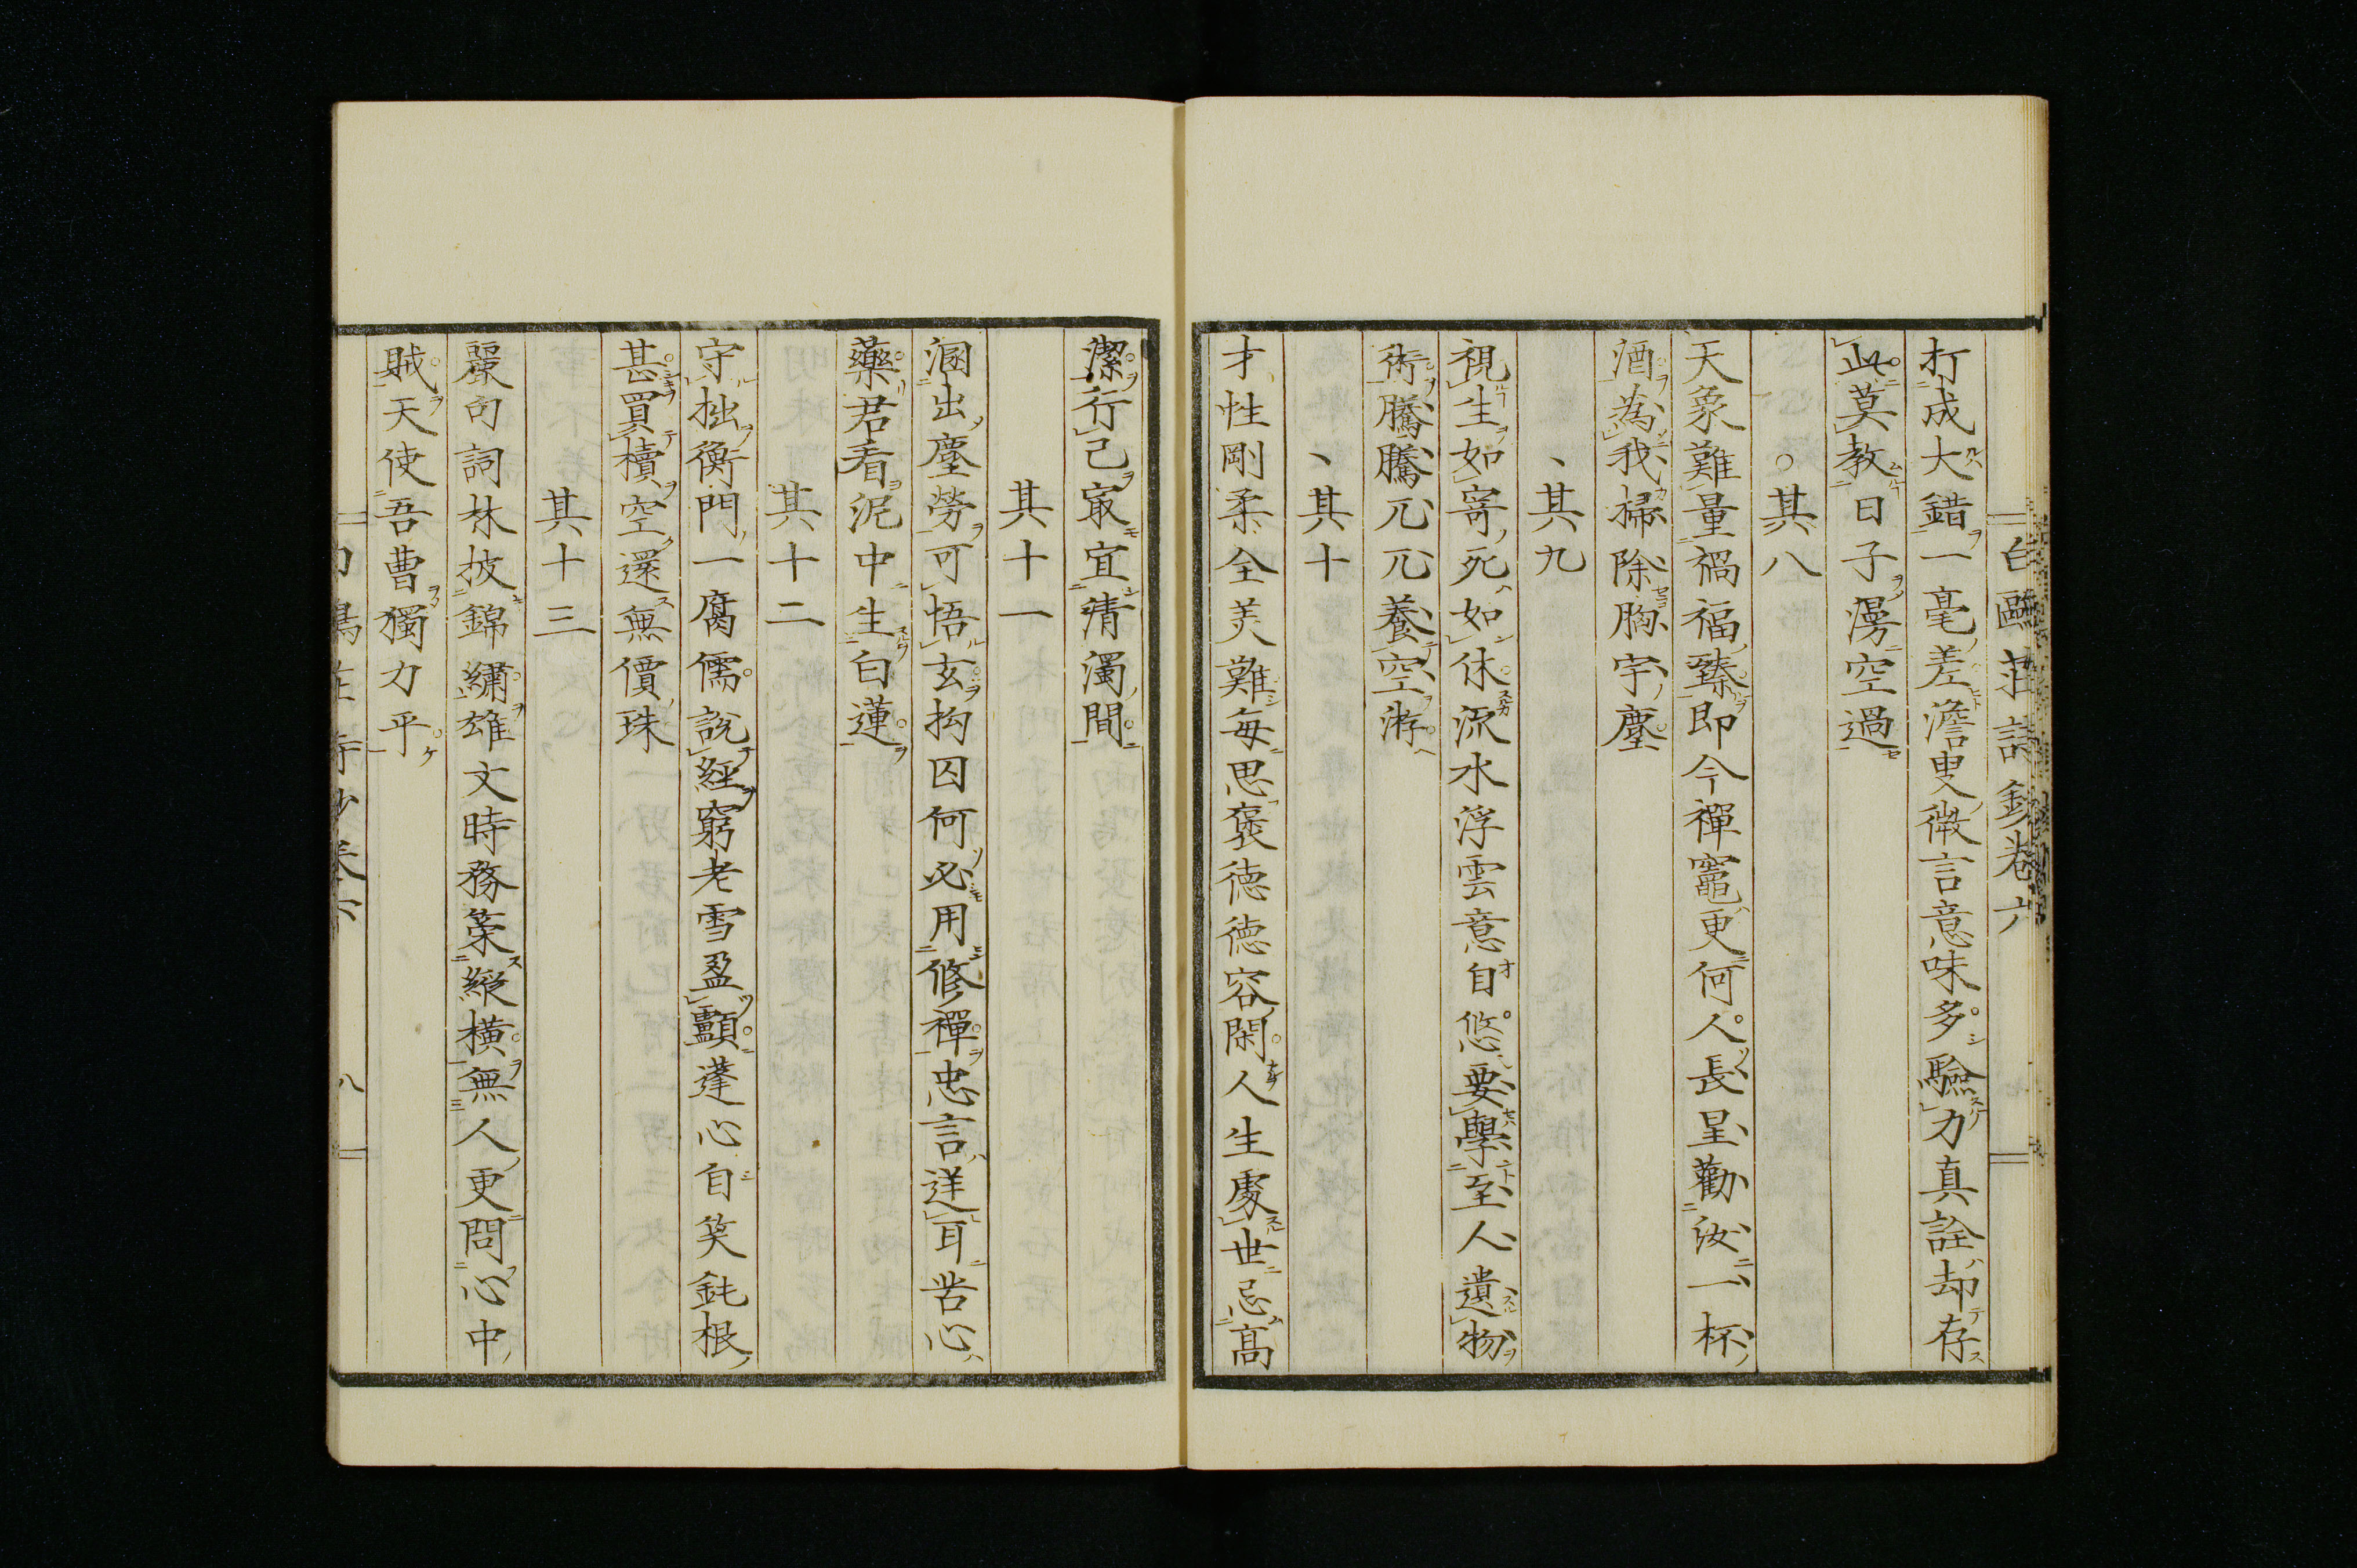 白鷗莊詩鈔卷六
打成大錯一毫差澹叟微言意味多驗力真詮却存
此莫教日子漫空過
其八
天象難量禍福臻即今禪竈更何人長星勸汝一杯
酒為我掃除胸宇塵
其九
視生如寄死如休流水浮雲意自悠要學至人遺物
術騰騰兀兀養空游
其十
才性剛柔全美難每思褒德德容閑人生處世忌高
潔行己㝡宜清濁間
其十一
溷出塵勞可悟玄拘囚何必用修禪忠言逆耳苦心
藥君看泥中生白蓮
其十二
守拙衡門一腐儒說經窮老雪盈顱蓬心自笑鈍根
甚買櫝空還無價珠
其十三
麗句詞林披錦繡雄文時務策縱橫無人更問心中
賊天使吾曹獨力平
八